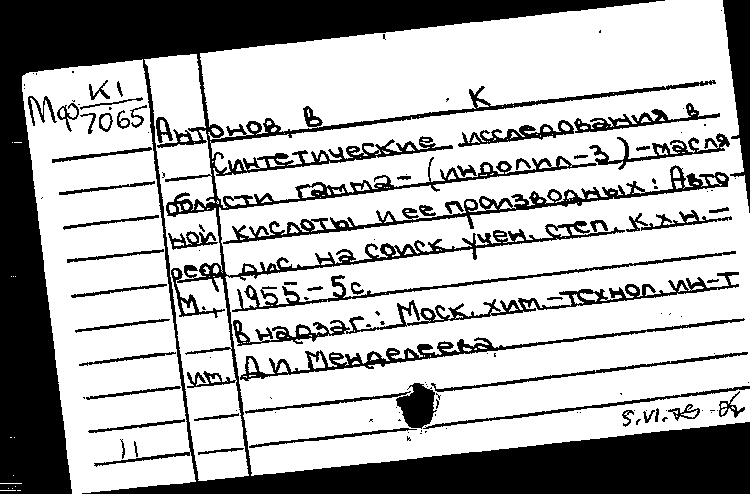 Мф К1
7065
Антонов, В К
Синтетические исследования в
области гамма-(индолил-3)-масля-
ной кислоты и ее производных: Авто-
реф дис. на соиск. учен. степ. к.х.н.-
М., 1955.-5с.
В надзаг.: Моск. хим.-технол. ин-т
им. Д И. Менделеева.
11